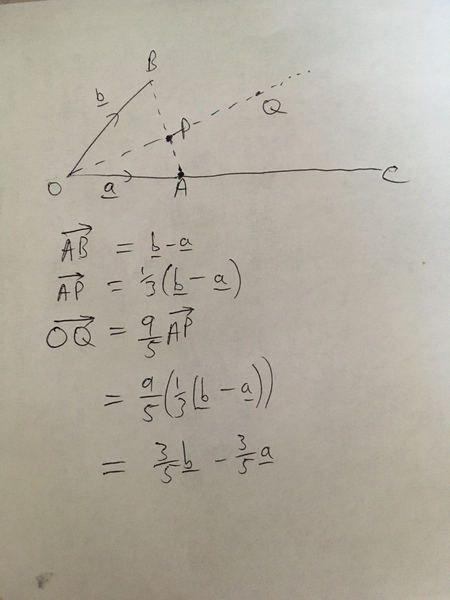 B
b
P
Q
O
a
A
C
AB = b - a
AP = 1/3 (b - a)
OQ = 9/5 AP
= 9/5 (1/3 (b - a))
= 3/5 b - 3/5 a